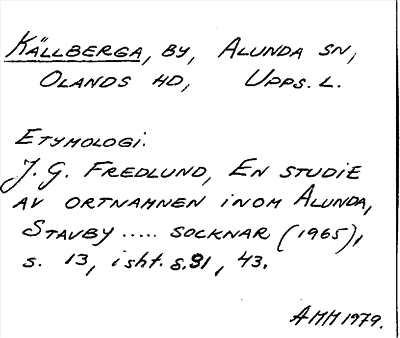 KÄLLBERGA, BY, ALUNDA SN,
OLANDS HD, UPPS. L.
ETYMOLOGI.
J. G. FREDLUND, EN STUDIE
AV ORTNAMNEN INOM ALUNDA,
STAVBY ..... SOCKNAR (1965),
s. 13, isht. s. 31, 43.
AMM 1979.